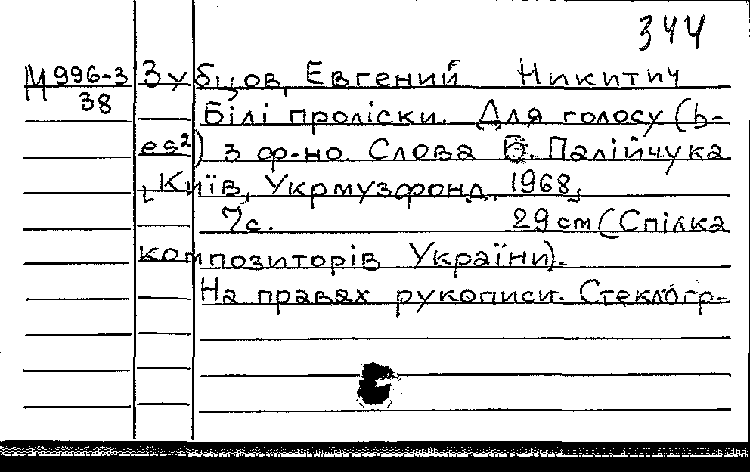 344
М996-3 Зубцов, Евгений Никитич
38
Білі проліски. Для голосу (b-
es²) з ф-но. Слова Б. Палійчука
[Київ, Укрмузфонд, 1968]
7с. 29 cm (Спілка
композиторів України).
На правах рукописи. Стеклогр.